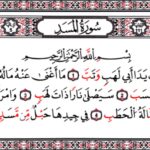 سُورَةُ الْمَسَدِ
بِسْمِ اللَّهِ الرَّحْمَٰنِ الرَّحِيمِ
يَدَا أَبِي لَهَبٍ وَتَبَّ مَا أَغْنَىٰ عَنْهُ مَالُهُ
سَيَصْلَىٰ نَارًا ذَاتَ لَهَبٍ
الْحَطَبِ فِي جِيدِهَا حَبْلٌ مِّن مَّسَدٍ